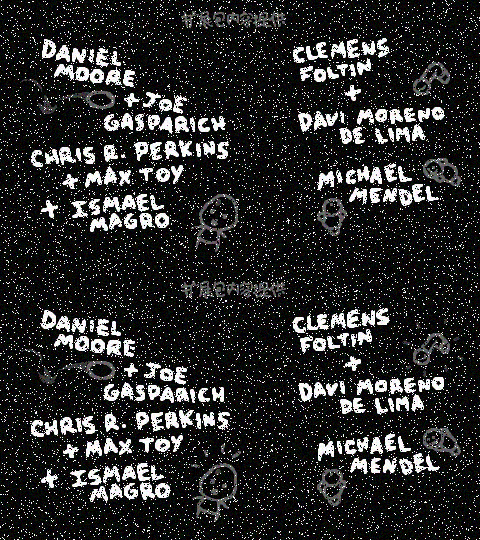 扩展包内容提供
DANIEL
MOORE
+ JOE
GASPARICH
CHRIS R. PERKINS
+ MAX TOY
+ ISMAEL
MAGRO
CLEMENS
FOLTIN
+
DAVI MORENO
DE LIMA
MICHAEL
MENDEL
扩展包内容提供
DANIEL
MOORE
+ JOE
GASPARICH
CHRIS R. PERKINS
+ MAX TOY
+ ISMAEL
MAGRO
CLEMENS
FOLTIN
+
DAVI MORENO
DE LIMA
MICHAEL
MENDEL